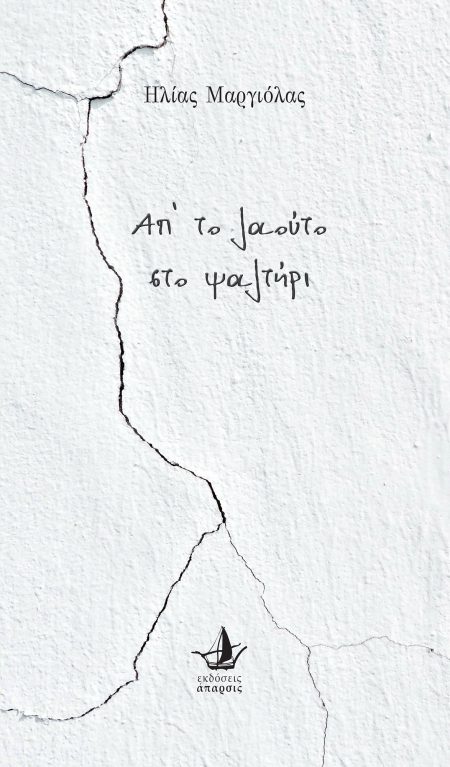 Ηλίας Μαργιόλας
Απ' το λαούτο
στο ψαλτήρι
εκδόσεις
άπαρσις